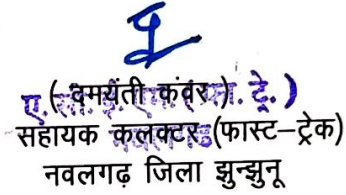 ( दमयंती कंवर )
सहायक कलक्टर (फास्ट-ट्रेक)
नवलगढ़ जिला झुन्झुनू